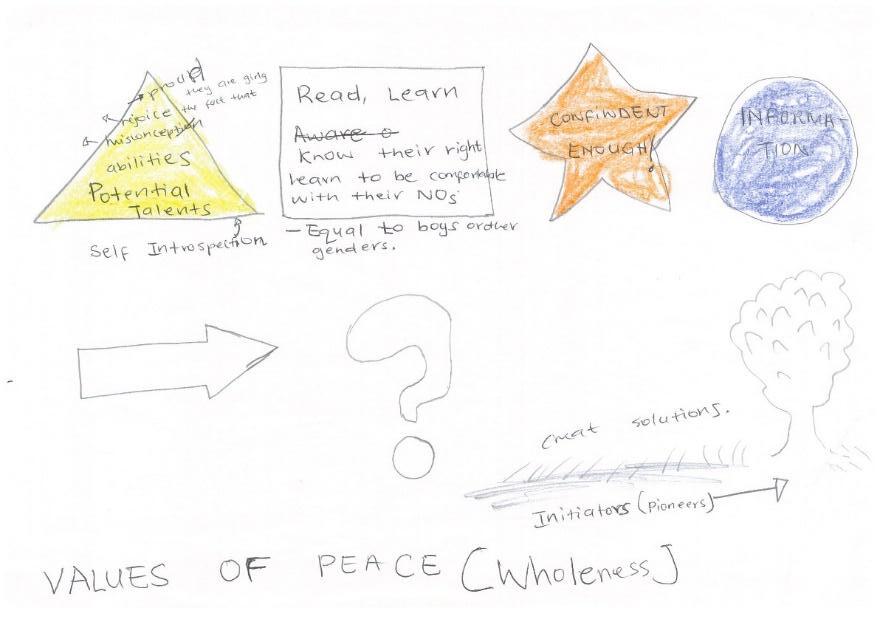 proud
they are girls
rejoice the fact that
misconception
abilities
Potential
Talents
Self Introspection
Read, Learn
Aware o
Know their right
Learn to be comfortable
with their NOs
- Equal to boys or other
genders.
CONFINDENT
ENOUGH!
INFORMA-
TION
Creat solutions.
Initiators (Pioneers)
VALUES OF PEACE (Wholeness)